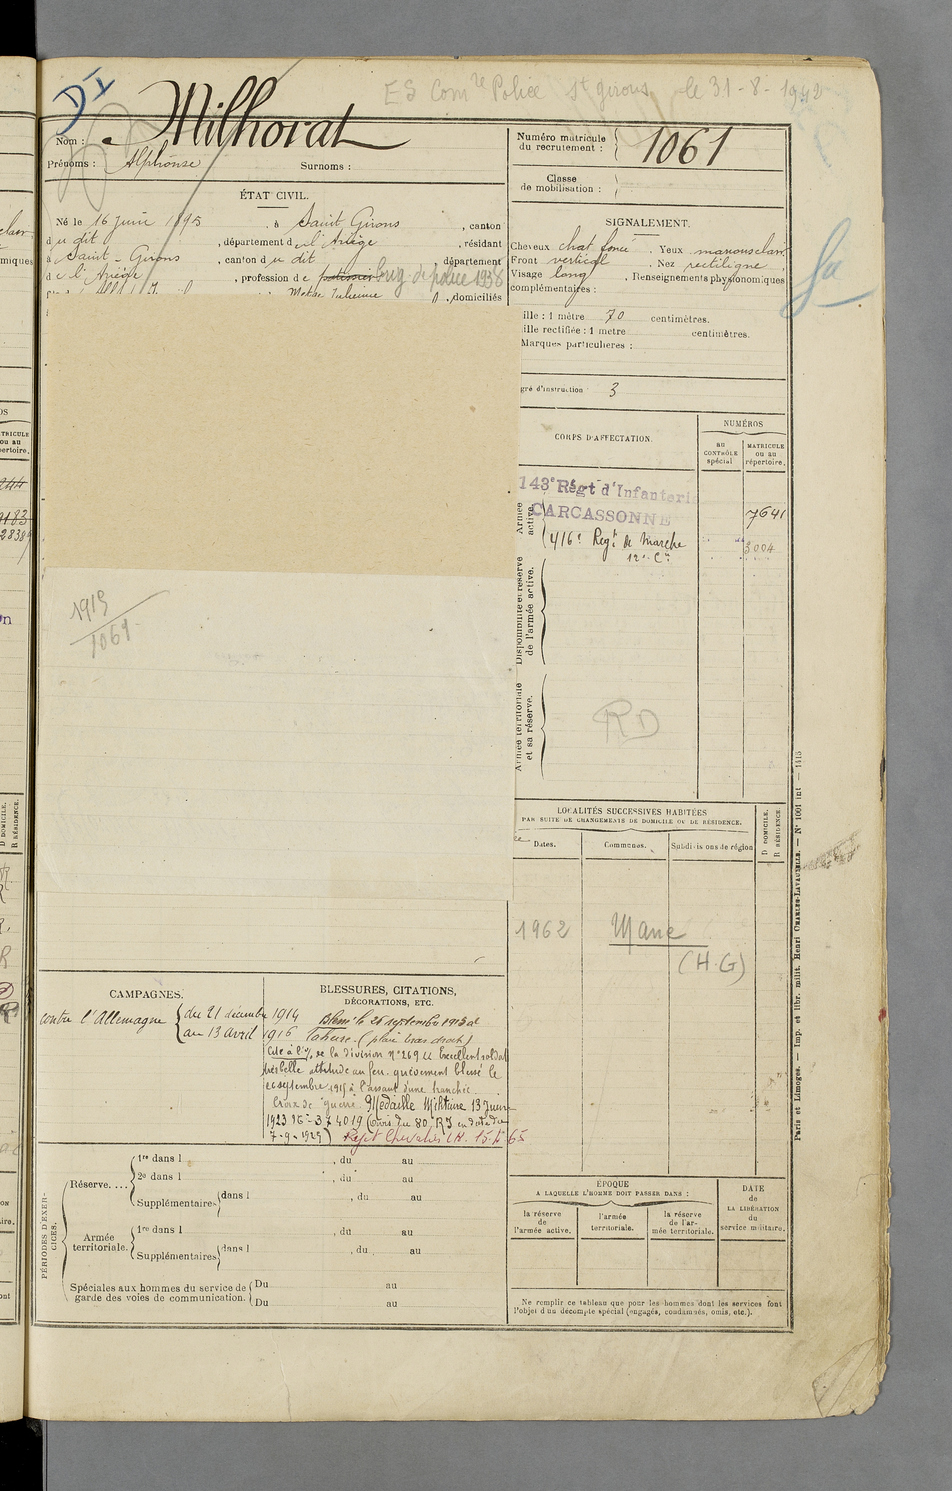 DI
ES Comre Police St Girons le 31-8-1942
Nom : Milhorat
Prénoms : Alphonse Surnoms :
Numéro matricule du recrutement : 1061
Classe de mobilisation :
ÉTAT CIVIL.
Né le 16 juin 1895, à Saint Girons, canton
du dit, département de l'Ariège, résidant
à Saint-Girons, canton du dit département
de l'Ariège, profession de patissier brig de police 1938
domiciliés
SIGNALEMENT.
Cheveux chat foncé. Yeux marrons clair
Front vertical. Nez rectiligne
Visage long, Renseignements physionomiques
complémentaires :
ille : 1 mètre 70 centimètres.
ille rectifiée : 1 mètre centimètres.
Marques particulières :
gré d'instruction 3
CORPS D'AFFECTATION.
NUMÉROS
au CONTRÔLE spécial
MATRICULE ou au répertoire.
Armée active.
143e Régt d'Infanterie
CARCASSONNE
7641
416e Regt de Marche
3004
12e Cie
Disponibilité et réserve de l'armée active.
Armée territoriale et sa réserve.
RD
1915
1061
LOCALITÉS SUCCESSIVES HABITÉES
PAR SUITE DE CHANGEMENTS DE DOMICILE OU DE RÉSIDENCE.
Dates. Communes. Subdivisions de région
D DOMICILE.
R RÉSIDENCE.
1962 Mane
(H.G)
CAMPAGNES.
contre l'Allemagne { du 21 décembre 1914
au 13 avril 1916
BLESSURES, CITATIONS,
DÉCORATIONS, ETC.
Blessé le 26 septembre 1915 à
Tahure. (plaie bras droit)
Cité à l'o/ de la division N° 269 u Excellent soldat
très belle attitude au feu. grièvement blessé le
26 septembre 1915 à l'assaut d'une tranchée
Croix de guerre. Médaille Militaire 13 juin
1923
7-9-1929)
PÉRIODES D'EXERCICES.
Réserve.... 1re dans l , du au
2e dans l , du au
Supplémentaires dans l , du au
Armée territoriale. 1re dans l , du au
Supplémentaires dans l , du au
Spéciales aux hommes du service de garde des voies de communication. Du au
Du au
ÉPOQUE
A LAQUELLE L'HOMME DOIT PASSER DANS :
la réserve de l'armée active.
l'armée territoriale.
la réserve de l'armée territoriale.
DATE de LA LIBÉRATION du service militaire.
Ne remplir ce tableau que pour les hommes dont les services font
l'objet d'un décompte spécial (engagés, condamnés, omis, etc.).
Paris et Limoges. — Imp. et libr. milit. Henri CHARLES-LAVAUZELLE. — N° 1001 int — 1415